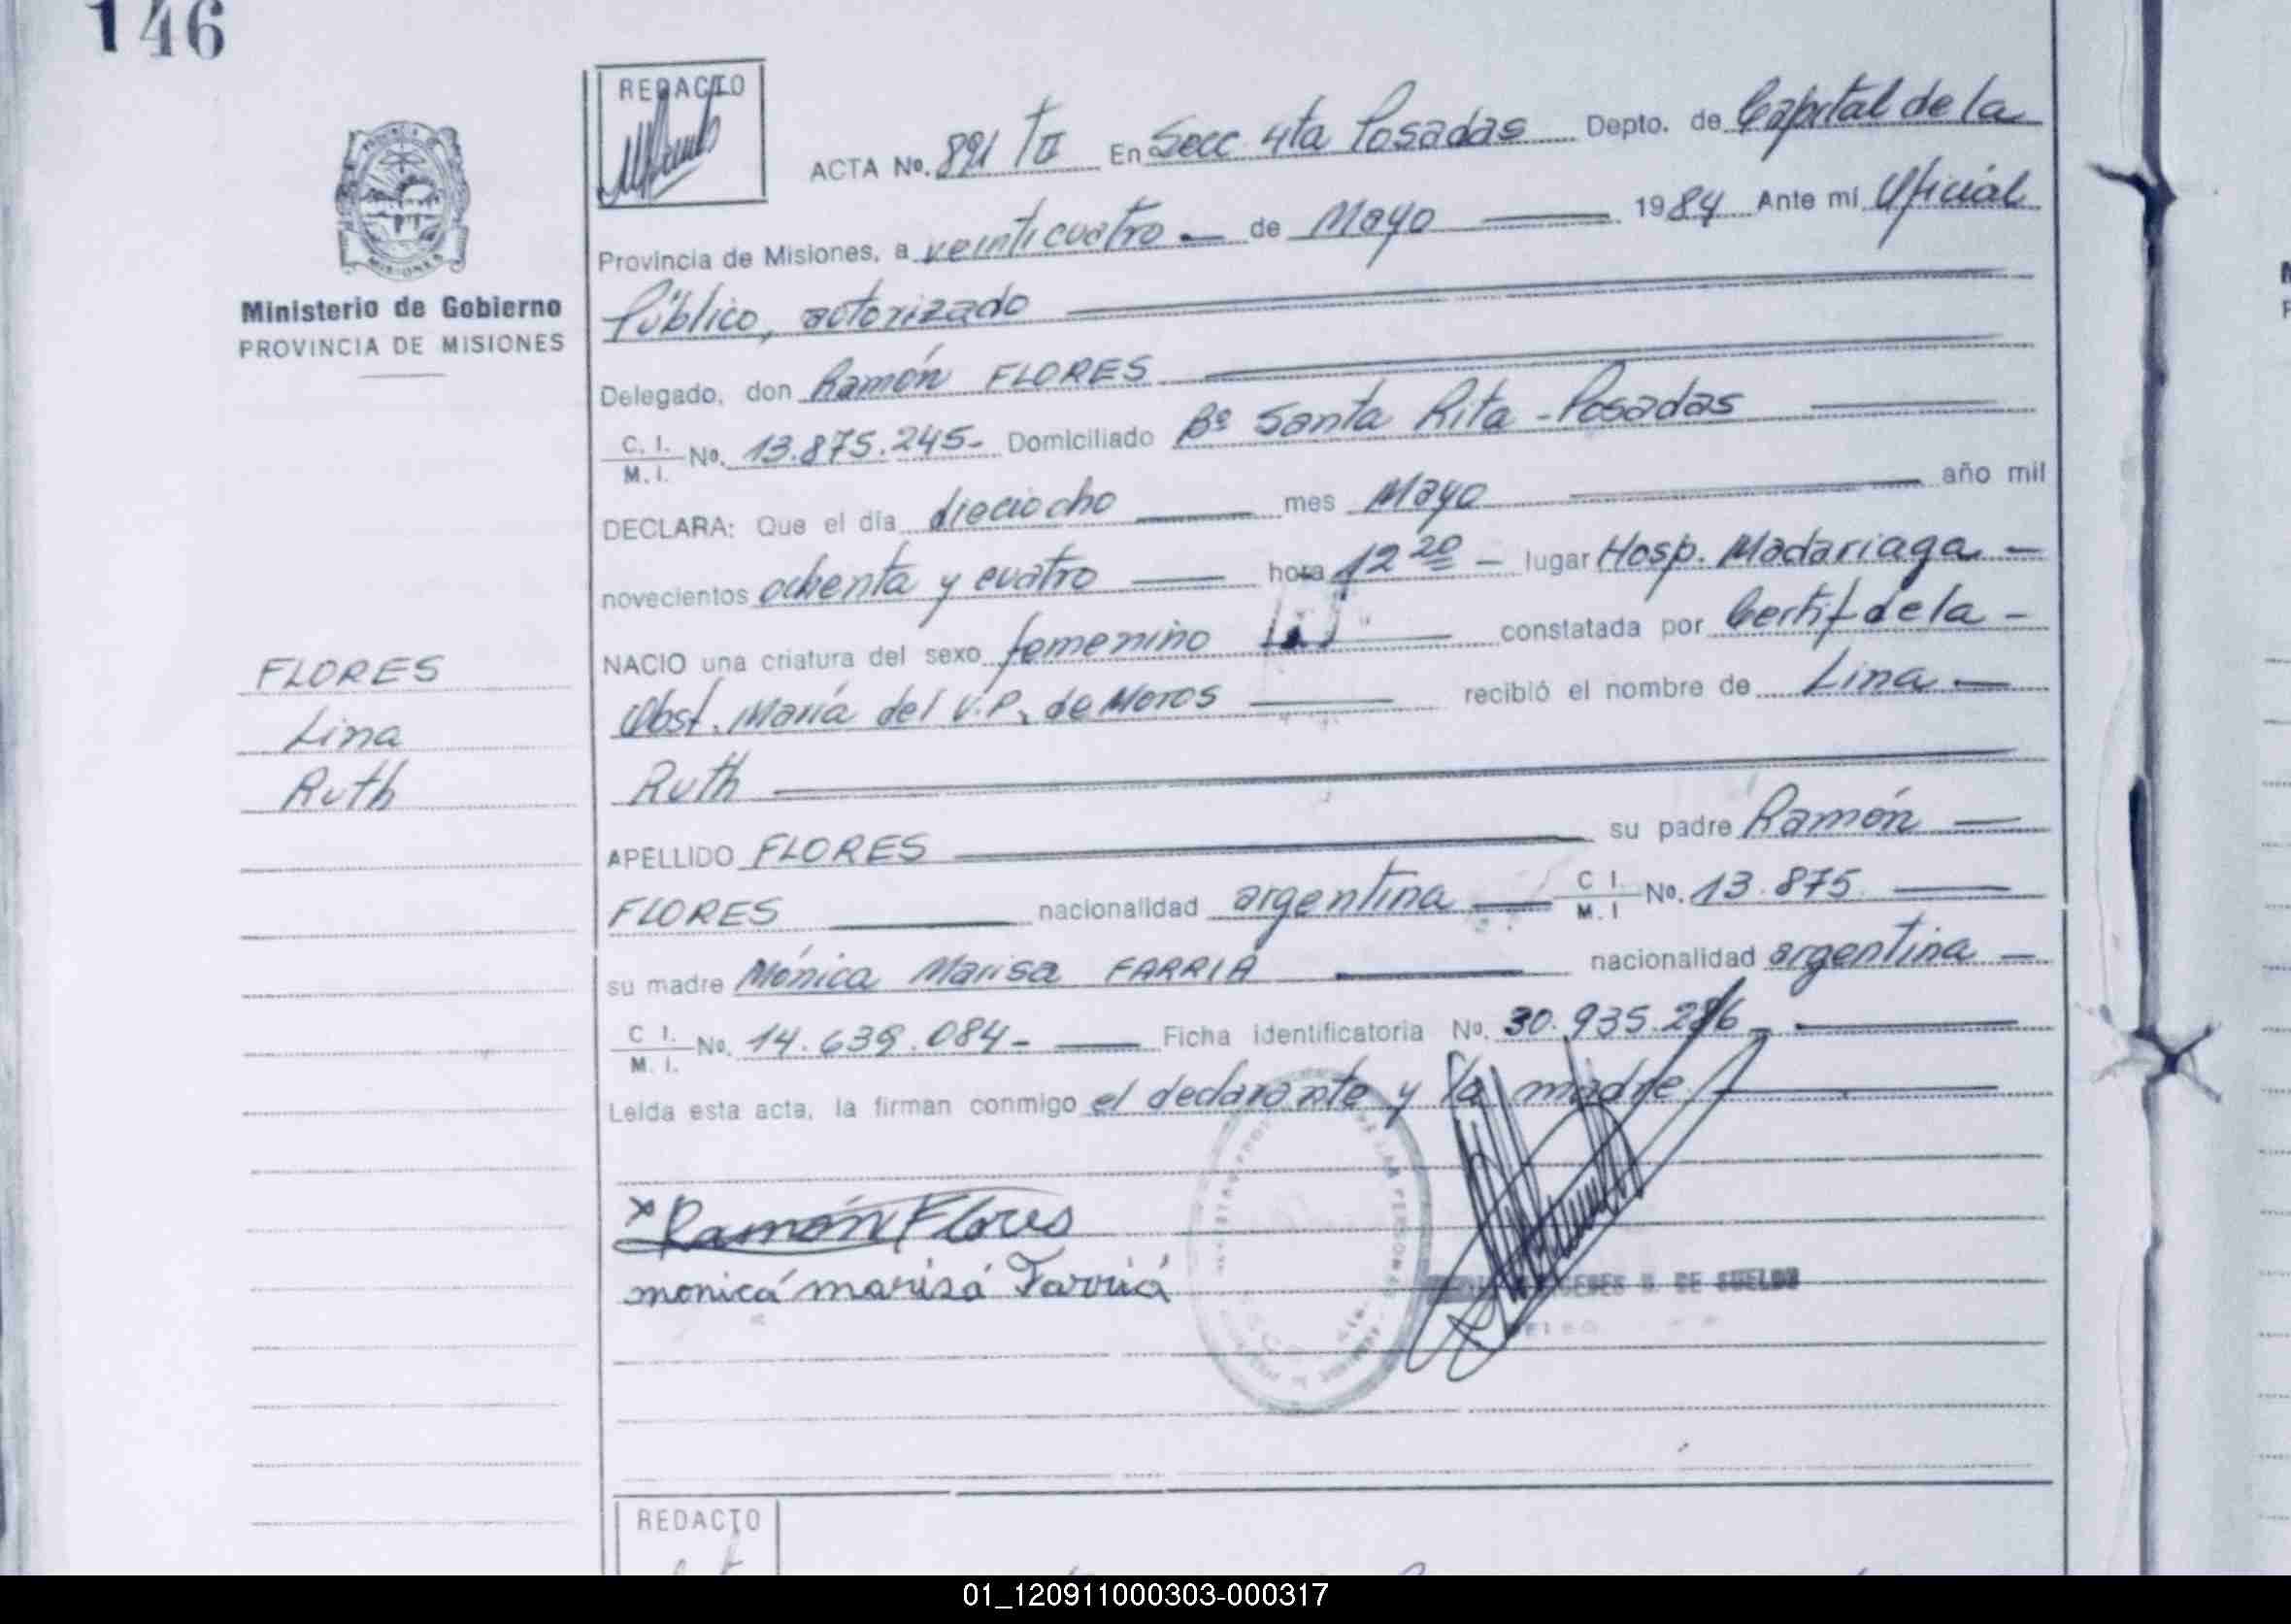 146
REDACTO
ACTA No. 891 TII En Secc 4ta Posadas Depto. de Capital de la
Provincia de Misiones, a veinticuatro de Mayo 1984 Ante mí Oficial
Público, autorizado
Delegado, don Ramón FLORES
C. I. M. I. No. 13.875.245- Domiciliado Bº Santa Rita - Posadas
DECLARA: Que el día dieciocho mes Mayo año mil
novecientos ochenta y cuatro hora 12 20 lugar Hosp. Madariaga
NACIO una criatura del sexo femenino constatada por Certif de la
Obst. María del V.P. de Meros recibió el nombre de Lina
Ruth
APELLIDO FLORES su padre Ramón
FLORES nacionalidad argentina C I. M. I No. 13.875
su madre Mónica Marisa FARRIÁ nacionalidad argentina
C I. M. I. No. 14.639.084- Ficha identificatoria No. 30.935.286
Leída esta acta, la firman conmigo el declarante y la madre
x Ramón Flores
monicá marisá Farriá
DE SUELDO
REDACTO
MISIONES
Ministerio de Gobierno
PROVINCIA DE MISIONES
FLORES
Lina
Ruth
01_120911000303-000317